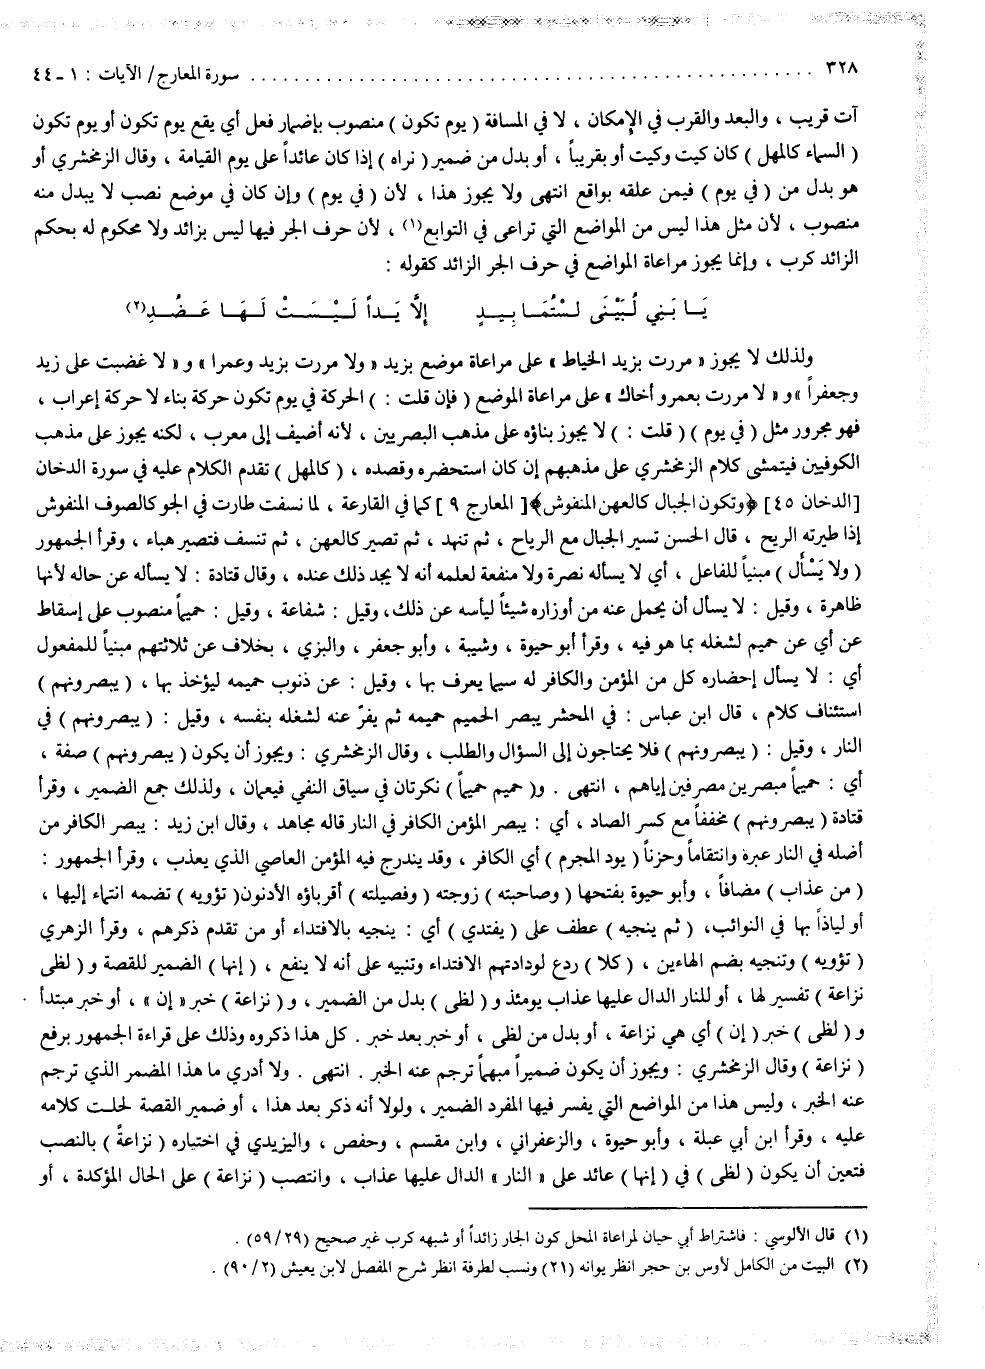 ٣٢٨ ........................................................ سورة المعارج/ الآيات : ١ ـ ٤٤
آت قريب ، والبعد والقرب في الإمكان ، لا في المسافة ( يوم تكون ) منصوب بإضمار فعل أي يقع يوم تكون أو يوم تكون
( السماء كالمهل ) كان كيت وكيت أو بقريباً ، أو بدل من ضمير ( نراه ) إذا كان عائداً على يوم القيامة ، وقال الزمخشري أو
هو بدل من ( في يوم ) فيمن علقه بواقع انتهى ولا يجوز هذا ، لأن ( في يوم ) وإن كان في موضع نصب لا يبدل منه
منصوب ، لأن مثل هذا ليس من المواضع التي تراعى في التوابع(١) ، لأن حرف الجر فيها ليس بزائد ولا محكوم له بحكم
الزائد كرب ، وإنما يجوز مراعاة المواضع في حرف الجر الزائد كقوله :
يَـا بَنِي لُبَيْنَى لسْتُمَـا بِيـدٍ إلَّا يَـداً لَـيْـسَـتْ لَـهَـا عَـضُـدِ(٢)
ولذلك لا يجوز « مررت بزيد الخياط » على مراعاة موضع بزيد « ولا مررت بزيد وعمرا » و « لا غضبت على زيد
وجعفراً » و « لا مررت بعمرو أخاك » على مراعاة الموضع ( فإن قلت : ) الحركة في يوم تكون حركة بناء لا حركة إعراب ،
فهو مجرور مثل ( في يوم ) ( قلت : ) لا يجوز بناؤه على مذهب البصريين ، لأنه أضيف إلى معرب ، لكنه يجوز على مذهب
الكوفيين فيتمشى كلام الزمخشري على مذهبهم إن كان استحضره وقصده ، ( كالمهل ) تقدم الكلام عليه في سورة الدخان
[الدخان ٤٥] ﴿وتكون الجبال كالعهن المنفوش﴾[ المعارج ٩ ] كما في القارعة ، لما نسفت طارت في الجو كالصوف المنفوش
إذا طيرته الريح ، قال الحسن تسير الجبال مع الرياح ، ثم تنهد ، ثم تصير كالعهن ، ثم تنسف فتصير هباء ، وقرأ الجمهور
( ولا يَسْأَل ) مبنياً للفاعل ، أي لا يسأله نصرة ولا منفعة لعلمه أنه لا يجد ذلك عنده ، وقال قتادة : لا يسأله عن حاله لأنها
ظاهرة ، وقيل : لا يسأل أن يحمل عنه من أوزاره شيئاً ليأسه عن ذلك، وقيل : شفاعة ، وقيل : حميماً منصوب على إسقاط
عن أي عن حميم لشغله بما هو فيه ، وقرأ أبو حيوة ، وشيبة ، وأبو جعفر ، والبزي ، بخلاف عن ثلاثتهم مبنياً للمفعول
أي : لا يسأل إحضاره كل من المؤمن والكافر له سيما يعرف بها ، وقيل : عن ذنوب حميمه ليؤخذ بها ، ( يبصرونهم )
استئناف كلام ، قال ابن عباس : في المحشر يبصر الحميم حميمه ثم يفرّ عنه لشغله بنفسه ، وقيل : ( يبصرونهم ) في
النار ، وقيل : ( يبصرونهم ) فلا يحتاجون إلى السؤال والطلب ، وقال الزمخشري : ويجوز أن يكون ( يبصرونهم ) صفة ،
أي : حميماً مبصرين مصرفين إياهم ، انتهى . و( حميم حميماً ) نكرتان في سياق النفي فيعمان ، ولذلك جمع الضمير ، وقرأ
قتادة ( يبصرونهم ) مخففاً مع كسر الصاد ، أي : يبصر المؤمن الكافر في النار قاله مجاهد ، وقال ابن زيد : يبصر الكافر من
أضله في النار عبرة وانتقاماً وحزناً ( يود المجرم ) أي الكافر ، وقد يندرج فيه المؤمن العاصي الذي يعذب ، وقرأ الجمهور :
( من عذاب ) مضافاً ، وأبو حيوة بفتحها ( وصاحبته ) زوجته ( وفصيلته ) أقرباؤه الأدنون( تؤويه ) تضمه انتماء إليها ،
أو لياذاً بها في النوائب، ( ثم ينجيه ) عطف على ( يفتدي ) أي : ينجيه بالافتداء أو من تقدم ذكرهم ، وقرأ الزهري
( تؤويه ) وتنجيه بضم الهاءين ، ( كلا ) ردع لودادتهم الافتداء وتنبيه على أنه لا ينفع ، ( إنها ) الضمير للقصة و ( لظى
نزاعة ) تفسير لها ، أو للنار الدال عليها عذاب يومئذ و ( لظى ) بدل من الضمير ، و ( نزاعة ) خبر « إن » ، أو خبر مبتدأ
و ( لظى ) خبر ( إن ) أي هي نزاعة ، أو بدل من لظى ، أو خبر بعد خبر . كل هذا ذكروه وذلك على قراءة الجمهور برفع
( نزاعة ) وقال الزمخشري : ويجوز أن يكون ضميراً مبهماً ترجم عنه الخبر . انتهى . ولا أدري ما هذا المضمر الذي ترجم
عنه الخبر ، وليس هذا من المواضع التي يفسر فيها المفرد الضمير ، ولولا أنه ذكر بعد هذا ، أو ضمير القصة لحلت كلامه
عليه ، وقرأ ابن أبي عبلة ، وأبو حيوة ، والزعفراني ، وابن مقسم ، وحفص ، واليزيدي في اختياره ( نزاعةً ) بالنصب
فتعين أن يكون ( لظى ) في ( إنها ) عائد على « النار » الدال عليها عذاب ، وانتصب ( نزاعة ) على الحال المؤكدة ، أو
(١) قال الألوسي : فاشتراط أبي حيان لمراعاة المحل كون الجار زائداً أو شبهه كرب غير صحيح (٥٩/٢٩) .
(٢) البيت من الكامل لأوس بن حجر انظر يوانه (٢١) ونسب لطرفة انظر شرح المفصل لابن يعيش (٩٠/٢) .